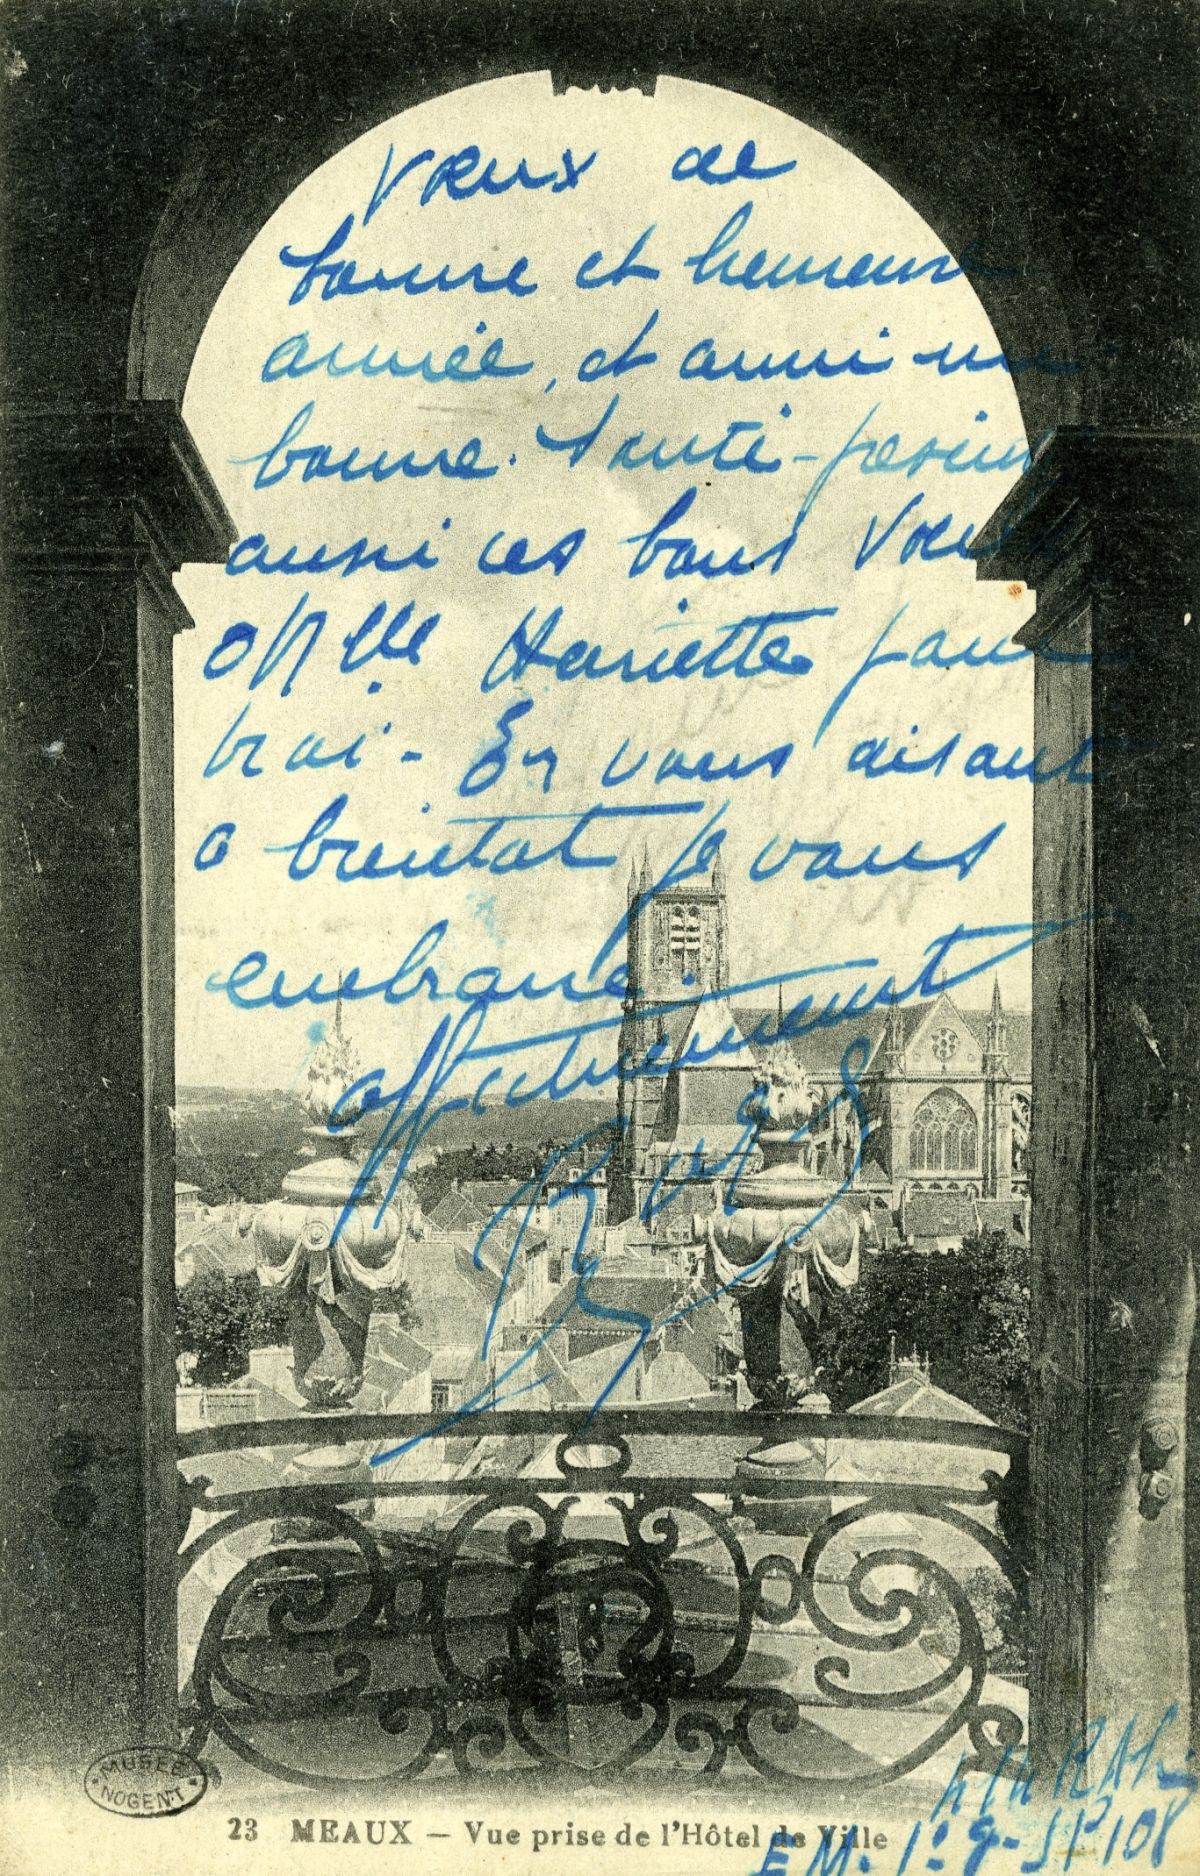 Vœux de
bonne et heureuse
année, et aussi une
bonne santé -
aussi ces bons vœux
Mlle Henriette pour
moi - En vous disant
a bientot je vous
embrasse.
affectueusement
MUSÉE
NOGENT
23 MEAUX — Vue prise de l'Hôtel de Ville
E.M. SP 108